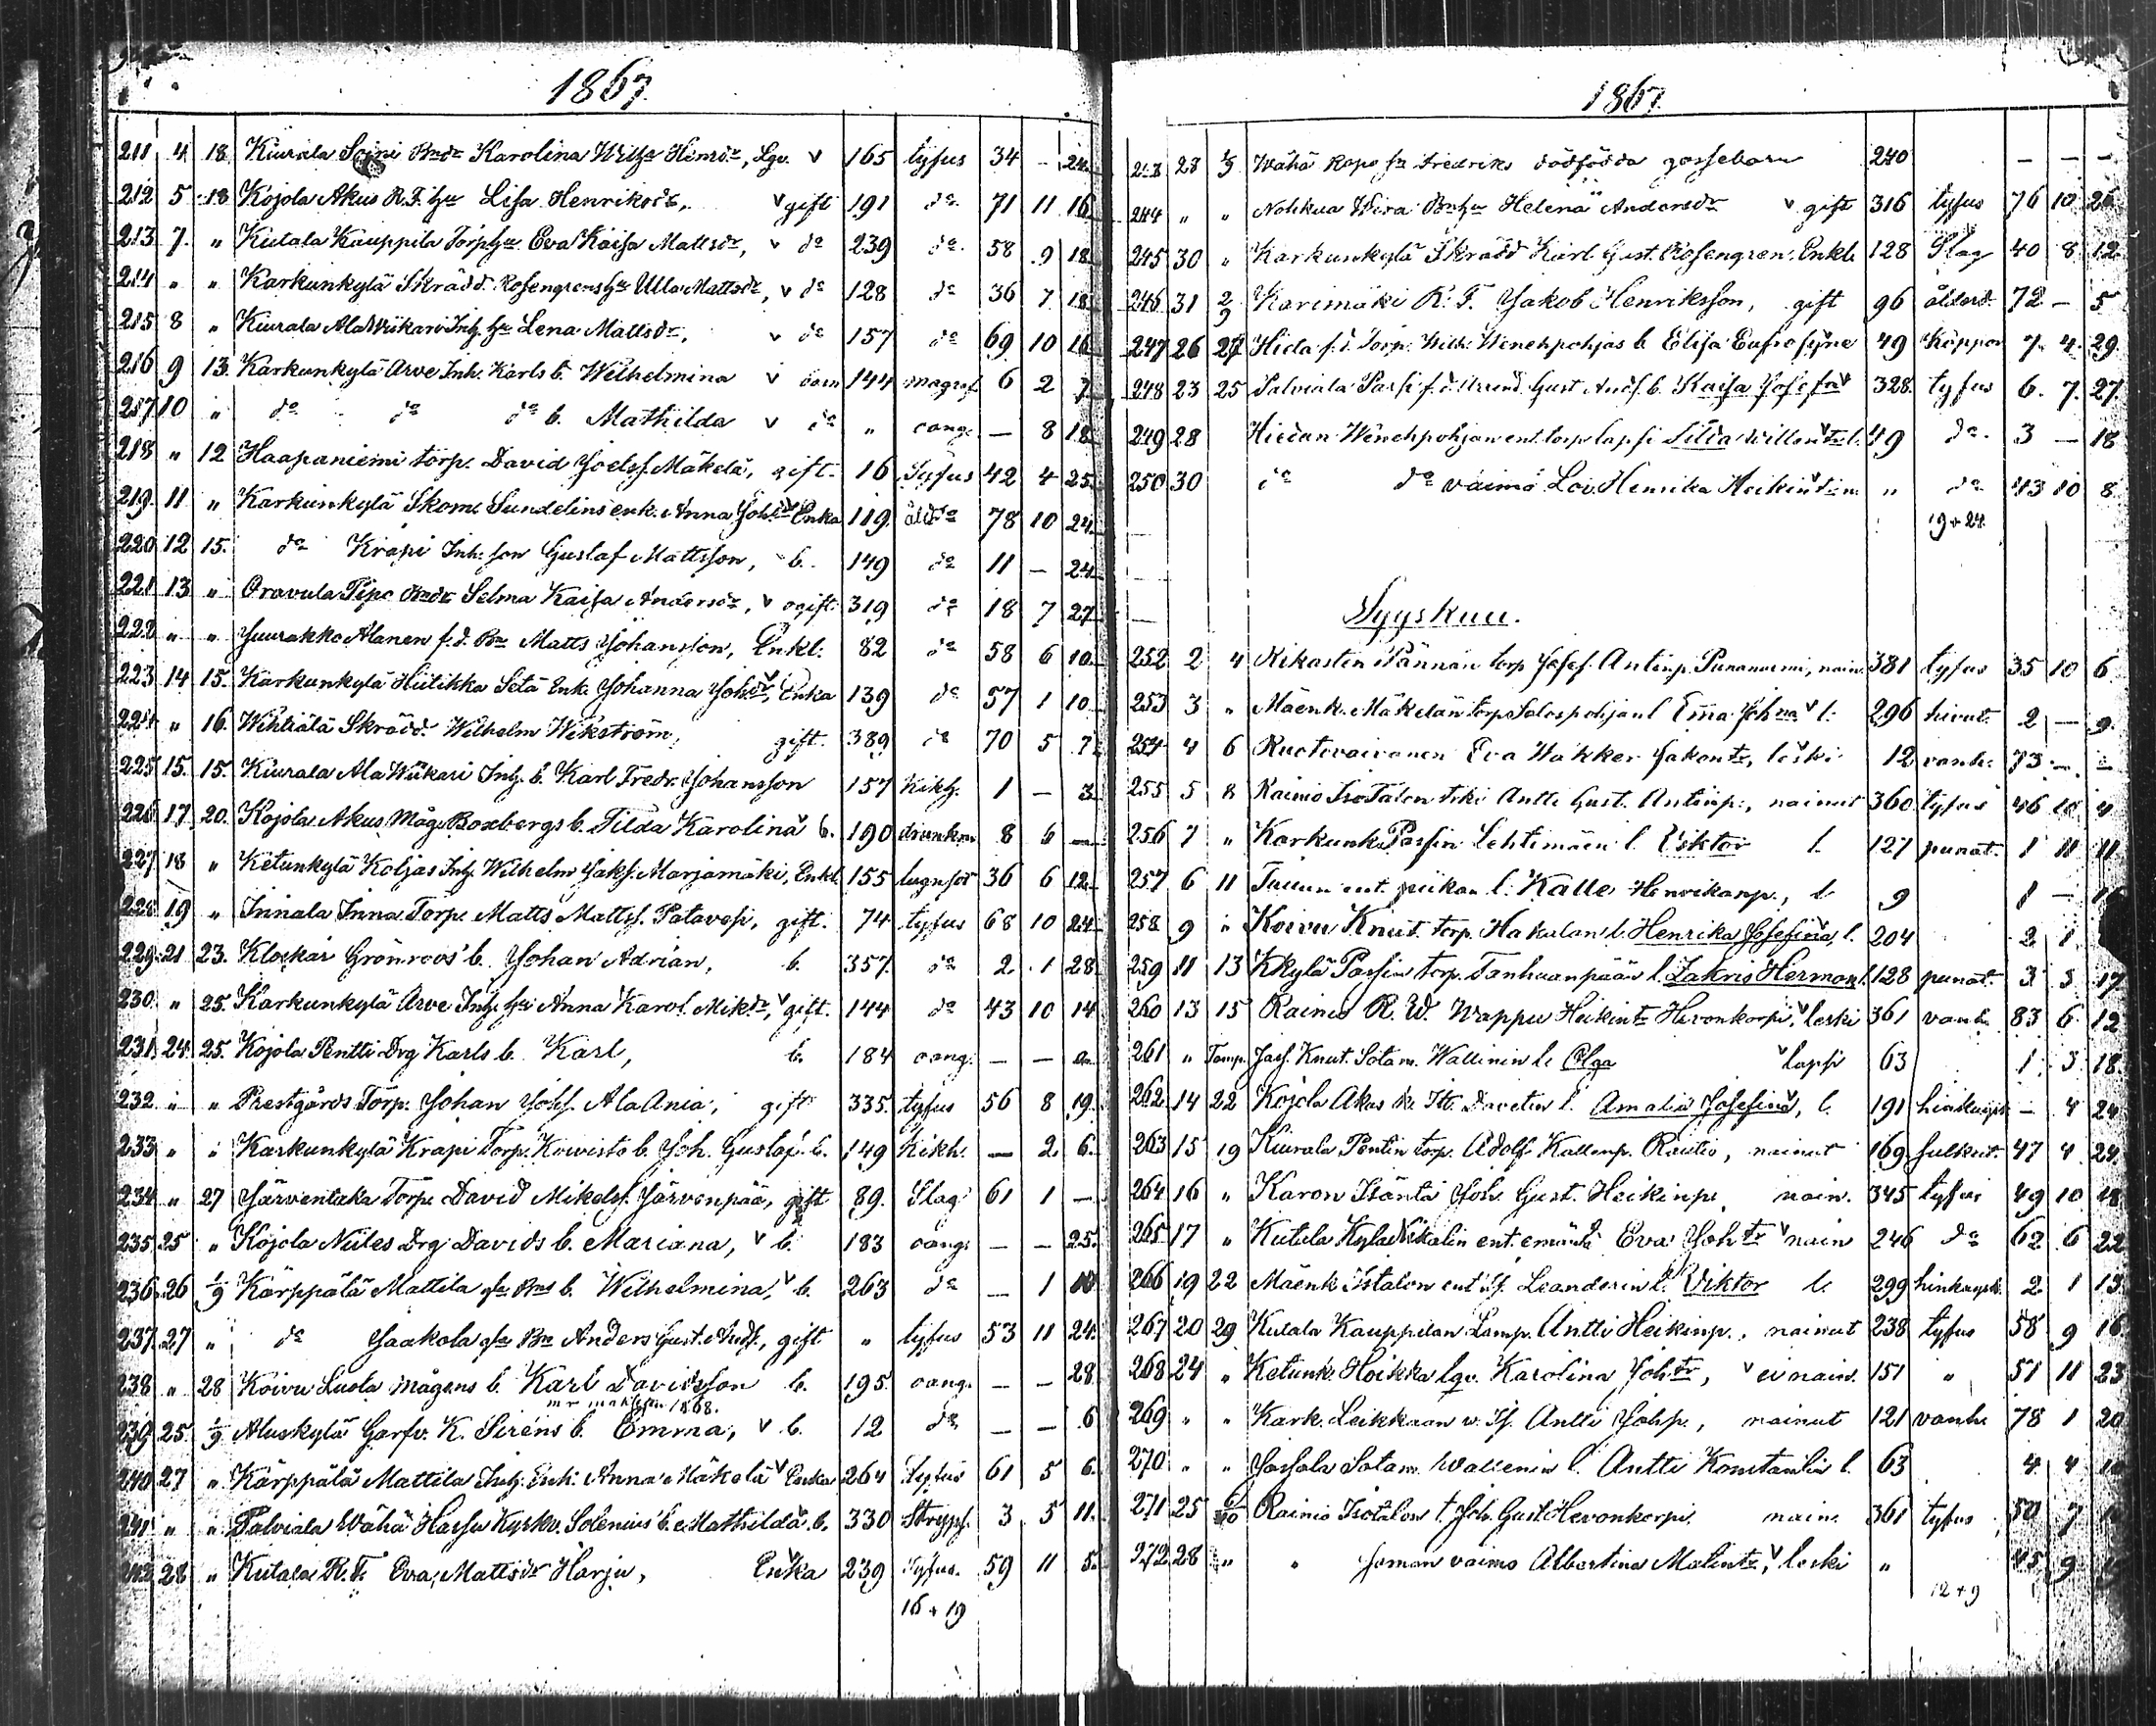 1867.
211 4 18 Kiurala Soini Bndr Karolina Wilh:a Henrdr, Lgv. v 165 tyfus 34 - 24
212 5 18 Kojola Akus R.F. hu Lisa Henriksdr, v gift 191 do 71 11 16
213 7. " Kutala Kauppila Torp hu Eva Kaisa Mattsdr, v do 239 do 58 9 18
214 " " Karkunkylä Skrädd. Rosengrens hu Ulla Mattsdr, v do 128 do 36 7 18
215 8 " Kiurala Ala Wiikari Inh. hu Lena Mattsdr, v do 157 do 69 10 16
216 9 13. Karkunkylä Arve Inh. Karls b. Wilhelmina v barn 144 magref 6 2 7
217 10 " do do do b. Mathilda v do " oang. — 8 18
218 " 12 Haapaniemi torp. David Joelsf. Mäkelä, gift. 16 Tyfus 42 4 25
219. 11 " Karkunkylä Skom. Sundelins enk. Anna Joh:dr v Enka 119 åld:a 78 10 24
220 12 15. do Krapi Inh. son Gustaf Mattsson, b. 149 do 11 — 24
221 13 " Oravula Pipo Bndr Selma Kaisa Andersdr, v ogift 319 do 18 7 27
222 " " Juurakko Alanen f.d. Bn Matts Johansson, Enkl. 82 do 58 6 10
223 14 15. Karkunkylä Hiitikka Setä Enk. Johanna Johsdr, v Enka 139 do 57 1 10
224 " 16. Wihtiälä Skrädd. Wilhelm Wikström, gift. 389 do 70 5 7
225 15. 15. Kiurala Ala Wiikari Inh. b. Karl Fredr. Johansson 157 Kikh. 1 — 3
226 17 20. Kojola Akus Måg Boxbergs b. Tilda Karolina v b. 190 drunkn 8 6 —
227 18 " Ketunkylä Koljas Inh. Wilhelm Jaks. Marjamäki, Enkl. 155 lugnsot 36 6 12
228 19 " Innala Inna Torp. Matts Mattsf. Patavesi, gift. 74 tyfus 68 10 24
229 21 23. Klockar Grönroos' b. Johan Adrian, b. 357 do 2 1 28
230. " 25. Karkunkylä Arve Inh. hu Anna Karol. Mik:dr, v gift. 144 do 43 10 14
231 24 25. Kojola Pentti Drg Karls b. Karl, b. 184 oang. — —
232. " " Prestgårds Torp. Johan Johsf. Ala Ania, gift 335. tyfus 56 8 19.
233 " " Karkunkylä Krapi Torp. Koivisto b. Joh. Gustaf b. 149 Kikh. — 2 6.
234 " 27 Järventaka Torp. David Mikelsf. Järvenpää, gift 89. Slag 61 1 —
235. 25 " Kojola Niites Drg Davids b. Mariana, v b. 183 oang. — — 25.
236 26 1/9 Kärppälä Mattila Bns b. Wilhelmina, v b. 263 do — 1 10
237. 27 " do Jaakola Bn Anders Gust. Andf., gift " tyfus 53 11 24.
238 " 28 Koivu Lusta mågens b. Karl Davidsson b. 195 oang. — — 28
1868.
239 25. 1/9 Aluskylä Garfv. K. Sirens b. Emma, v b. 12 do — — 6
240 27 " Kärppälä Mattila Inh. Enk. Anna Mäkelä v Enka 264 Tyfus 61 5 6.
241 " " Palviala Wähä Hassu Kyrkv. Solenius' b. Mathilda v b. 330 Strypf. 3 5 11.
242 28 " Kutala R.F. Eva, Mattsdr Harju, v Enka 239 Tyfus. 59 11 5.
16 + 19
1867.
243 28 1/9 Wähä Ropo Fredriks dödfödda gossebarn 240 — — —
244 " " Nohkua Wira Bn hu Helena Andersdr v gift 316 tyfus 76 10 26
245 30 " Karkunkylä Skrädd Karl Gust. Rosengren. Enkl. 128 Slag 40 8 12
246 31 2/9 Karimäki R.F. Jakob Henriksson, gift 96 ålderd. 72 — 5
247 26 27 Hiida f.d. Torp. Wilh. Winehpohjas b. Elisa Eufrosyne 49 Koppor 7. 4. 29.
248 23 25 Palviala Passi f.d. Gust Andf. b. Kaisa Josefa v 328. tyfus 6. 7. 27.
249 28 Hiidan Winehpohjan ent. torp. lapsi Tilda Willen v tr l. 49 do 3 — 18
250 30 do do vaimo Lov. Henrika Heikin v tr n. " do 43 10 8.
19 + 24
Syyskuu.
252 2 4 Kikastin Pännän torp Josef Antinp. Punanummi, nain. 381 tyfus 35 10 6
253 3 " Mäenk. Mäkelän torp Salospohjan l Emma Joh:na v l. 296 hivut. 2 — 9.
254 4 6 Ruotivaivanen Eva Wakker Jakon tr, v leski 12 vanh. 73 — —
255 5 8 Rainio Iso Talon Antti Gust. Antinp., nainut 360 tyfus 46 10 4
256 7 " Karkunk. Passin Lehtimäen l Viktor l. 127 punat. 1 11 11
257 6 11 ent. piikan l. Kalle Henrikanp., l. 9 1 —
258 9 " Koivu Knut. torp. Hakalan l. Henrika Josefina v l. 204 2 1
259 11 13 Kkylä Passin torp. Tanhuanpään l. Zakris Herman l. 128 punat. 3 3 17
260 13 15 Rainio R.W. Wappu Heikin tr Hevonkorpi, v leski 361 vanh. 83 6 12
261 " Tamp. Jass. Knut. Sotam. Wallinin l. Olga v lapsi 63 1 3 18.
262 14 22 Kojola Akus R. Itt. Davetin l. Amalia Josefina v, l. 191 hinkuysk — 4 24
263 15 19 Kiurala Pentin torp. Adolf Kallenp. Rautio, nainut 169 halkeut. 47 4 24
264 16 " Karon Isäntä Joh. Gust. Heikinp. nain. 345 tyfus 49 10 18
265 17 " Kutala Kylä Nikalin ent. emäntä Eva Joh tr v nain 246 do 62 6 22
266 19 22 Mäenk Istalon ent. Leanderin l. Viktor l. 299 hinkuysk. 2 1 13
267 20 29 Kutala Kauppilan Lamp. Antti Heikinp., nainut 238 tyfus 58 9 16
268 24 " Ketunk. Hoikka lgv. Karolina Joh:tr, v ei nain. 151 " 51 11 23
269 " " Kark. Leikkaan v. Antti Johp., nainut 121 vanh. 78 1 20
270 " " Jassala Sotam. Wallenin l. Antti Konstantin l. 63 4 4
271 25 6/10 Rainio Isotalon t. Joh. Gust Hevonkorpi. nain. 361 tyfus 50 7
272 28 " " saman vaimo Albertina Malin tr, v leski " 45 9
12 + 9